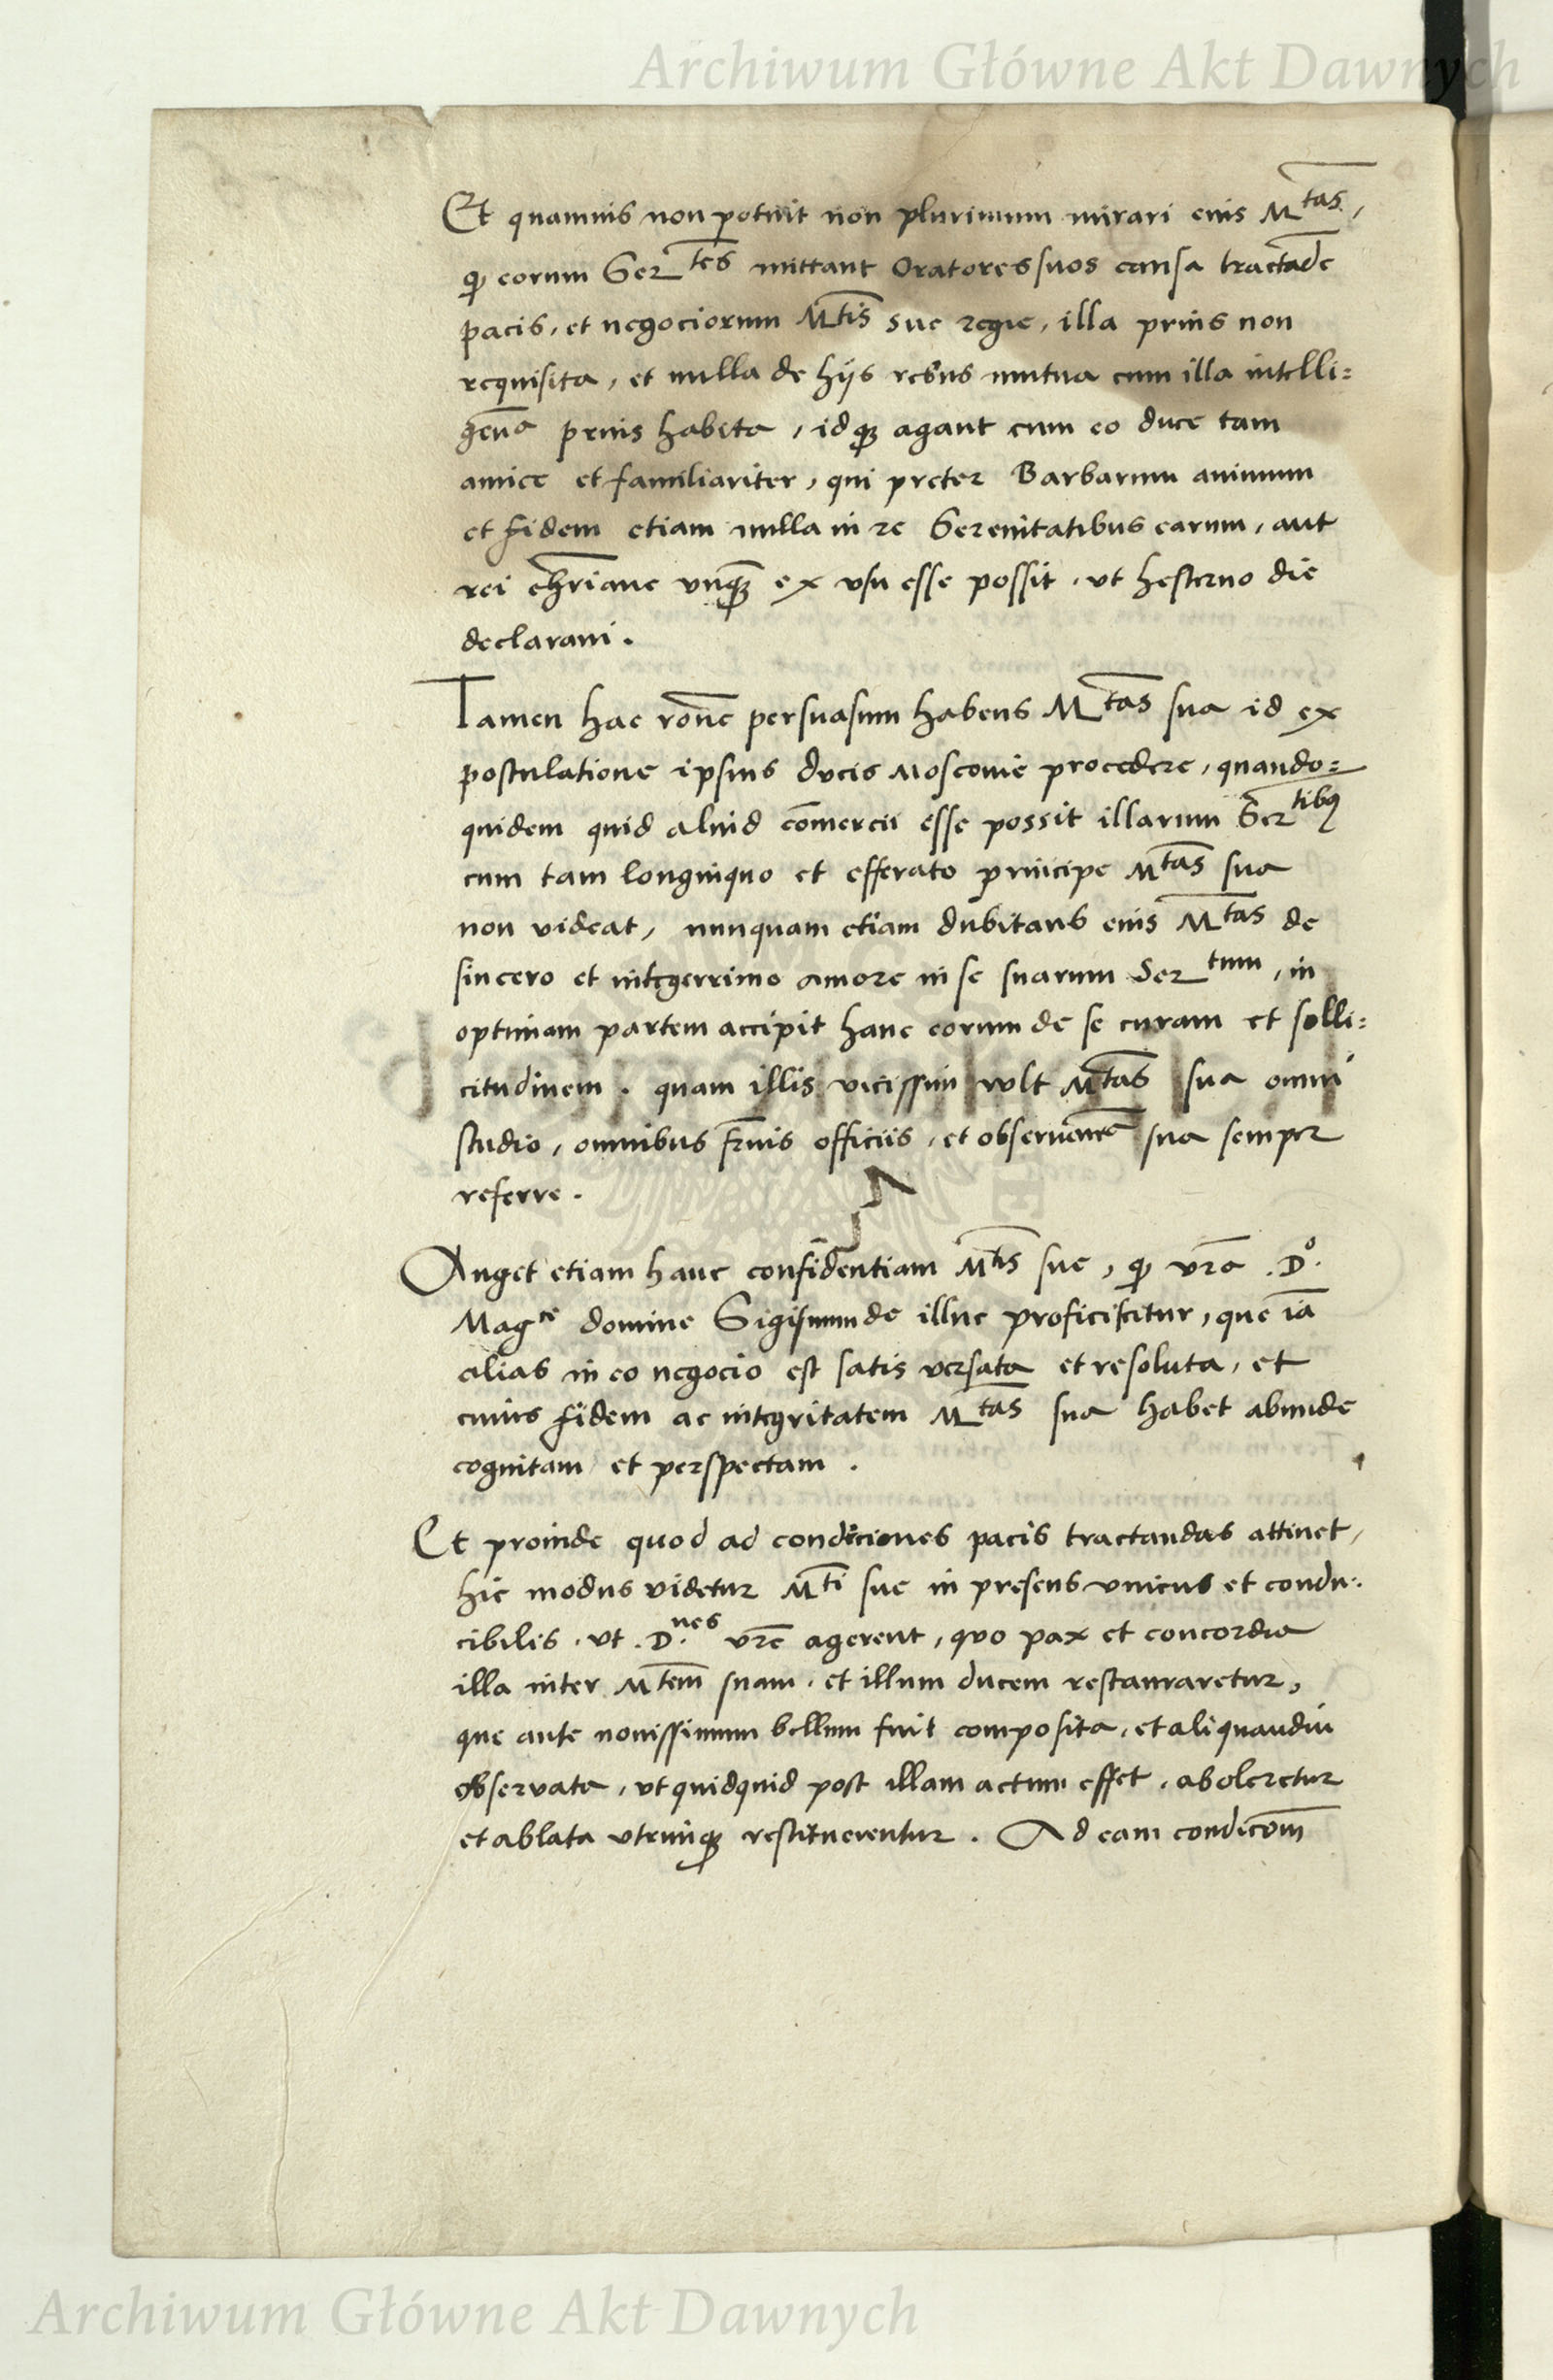 Archiwum Główne Akt Dawnych
Et quamuis non potuit non plurimum mirari eius M^tas,
q̃ eorum Ser^tes mittant Oratores suos causa tractãde
pacis, et negociorum M^tis sue regie, illa prius non
requisita, et nulla de hijs rebus mutua cum illa intelli:
geña prius habita, idq̃ agant cum eo duce tam
amice et familiariter, qui preter Barbarum animum
et fidem etiam nulla in re Serenitatibus earum, aut
rei chr̃iane vnq̃ ex vsu esse possit, vt hesterno die
declaraui.
Tamen hac rõne persuasum habens M^tas sua id ex
postulatione ipsius ducis Moscouie procedere, quando:
quidem quid aliud cõmercii esse possit illarum Ser^tibq
cum tam longinquo et efferato principe M^tas sua
non videat, nunquam etiam dubitans eius M^tas de
sincero et integerrimo amore in se suarum Ser^tum, in
optimam partem accipit hanc eorum de se curam et solli:
citudinem. quam illis vicissim wlt M^tas sua omni
studio, omnibus fr̃nis officiis, et obseruan̄ca sua semper
referre.
Auget etiam hanc confidentiam M^tis sue, q̃ vr̃a .D^o.
Mag^ce domine Sigismunde illuc proficiscitur, que iã
alias in eo negocio est satis versata et resoluta, et
cuius fidem ac integritatem M^tas sua habet abunde
cognitam et perspectam.
Et proinde quod ad condiciones pacis tractandas attinet,
hic modus videtur M^ti sue in presens vnicus et condu:
cibilis. vt .D.^nes vr̃e agerent, quo pax et concordia
illa inter M^tem suam, et illum ducem restauraretur,
que ante nouissimum bellum fuit composita, et aliquandiu
obseruata, vt quidquid post illam actum esset, aboleretur
et ablata vtrinq̃ restituerentur. Ad eam condicõm
Archiwum Główne Akt Dawnych